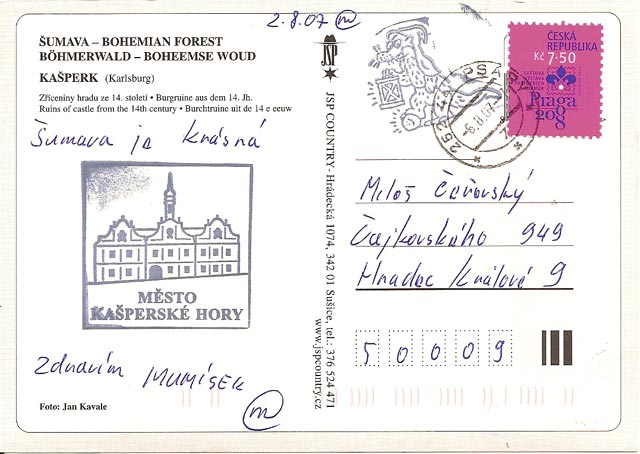 2.8.07 m
ŠUMAVA – BOHEMIAN FOREST
BÖHMERWALD – BOHEEMSE WOUD
KAŠPERK (Karlsburg)
Zříceniny hradu ze 14. století • Burgruine aus dem 14. Jh.
Ruins of castle from the 14th century • Burchtruine uit de 14 e eeuw
Šumava je krásná
MĚSTO
KAŠPERSKÉ HORY
Zdravím MUMÍSEK
m
Foto: Jan Kavale
JSP
JSP COUNTRY - Hrádecká 1074, 342 01 Sušice, tel.: 376 524 471
www.jspcountry.cz
ČESKÁ
REPUBLIKA
Kč 7·50
Praga
2008
-6.8.07
Miloš
Čajkovského 949
Hradec Králové 9
50009